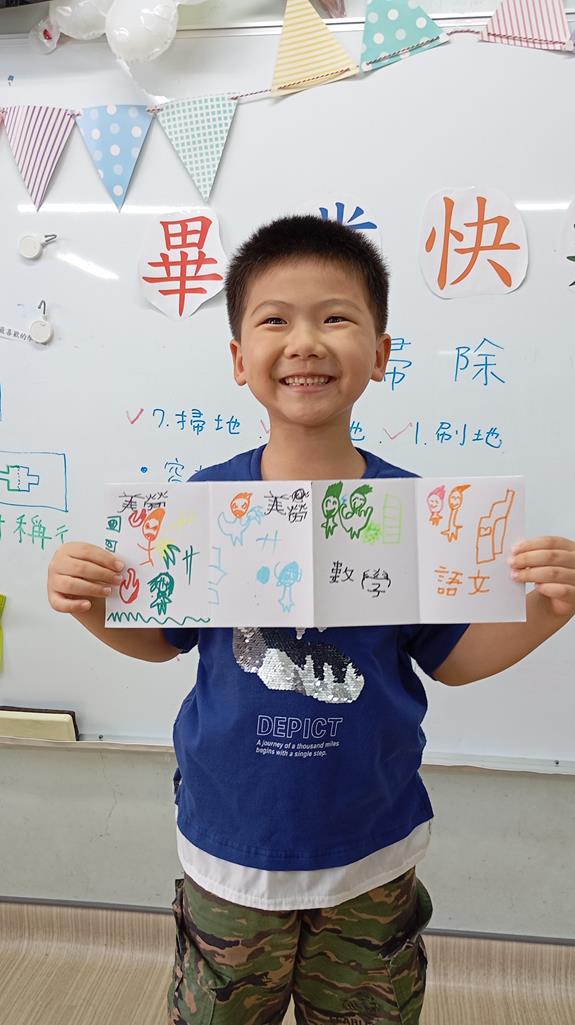 畢業快
最喜歡的
掃除
7.掃地
地
1.刷地
稱
美勞
美勞
數學
語文
DEPICT
A journey of a thousand miles
begins with a single step.